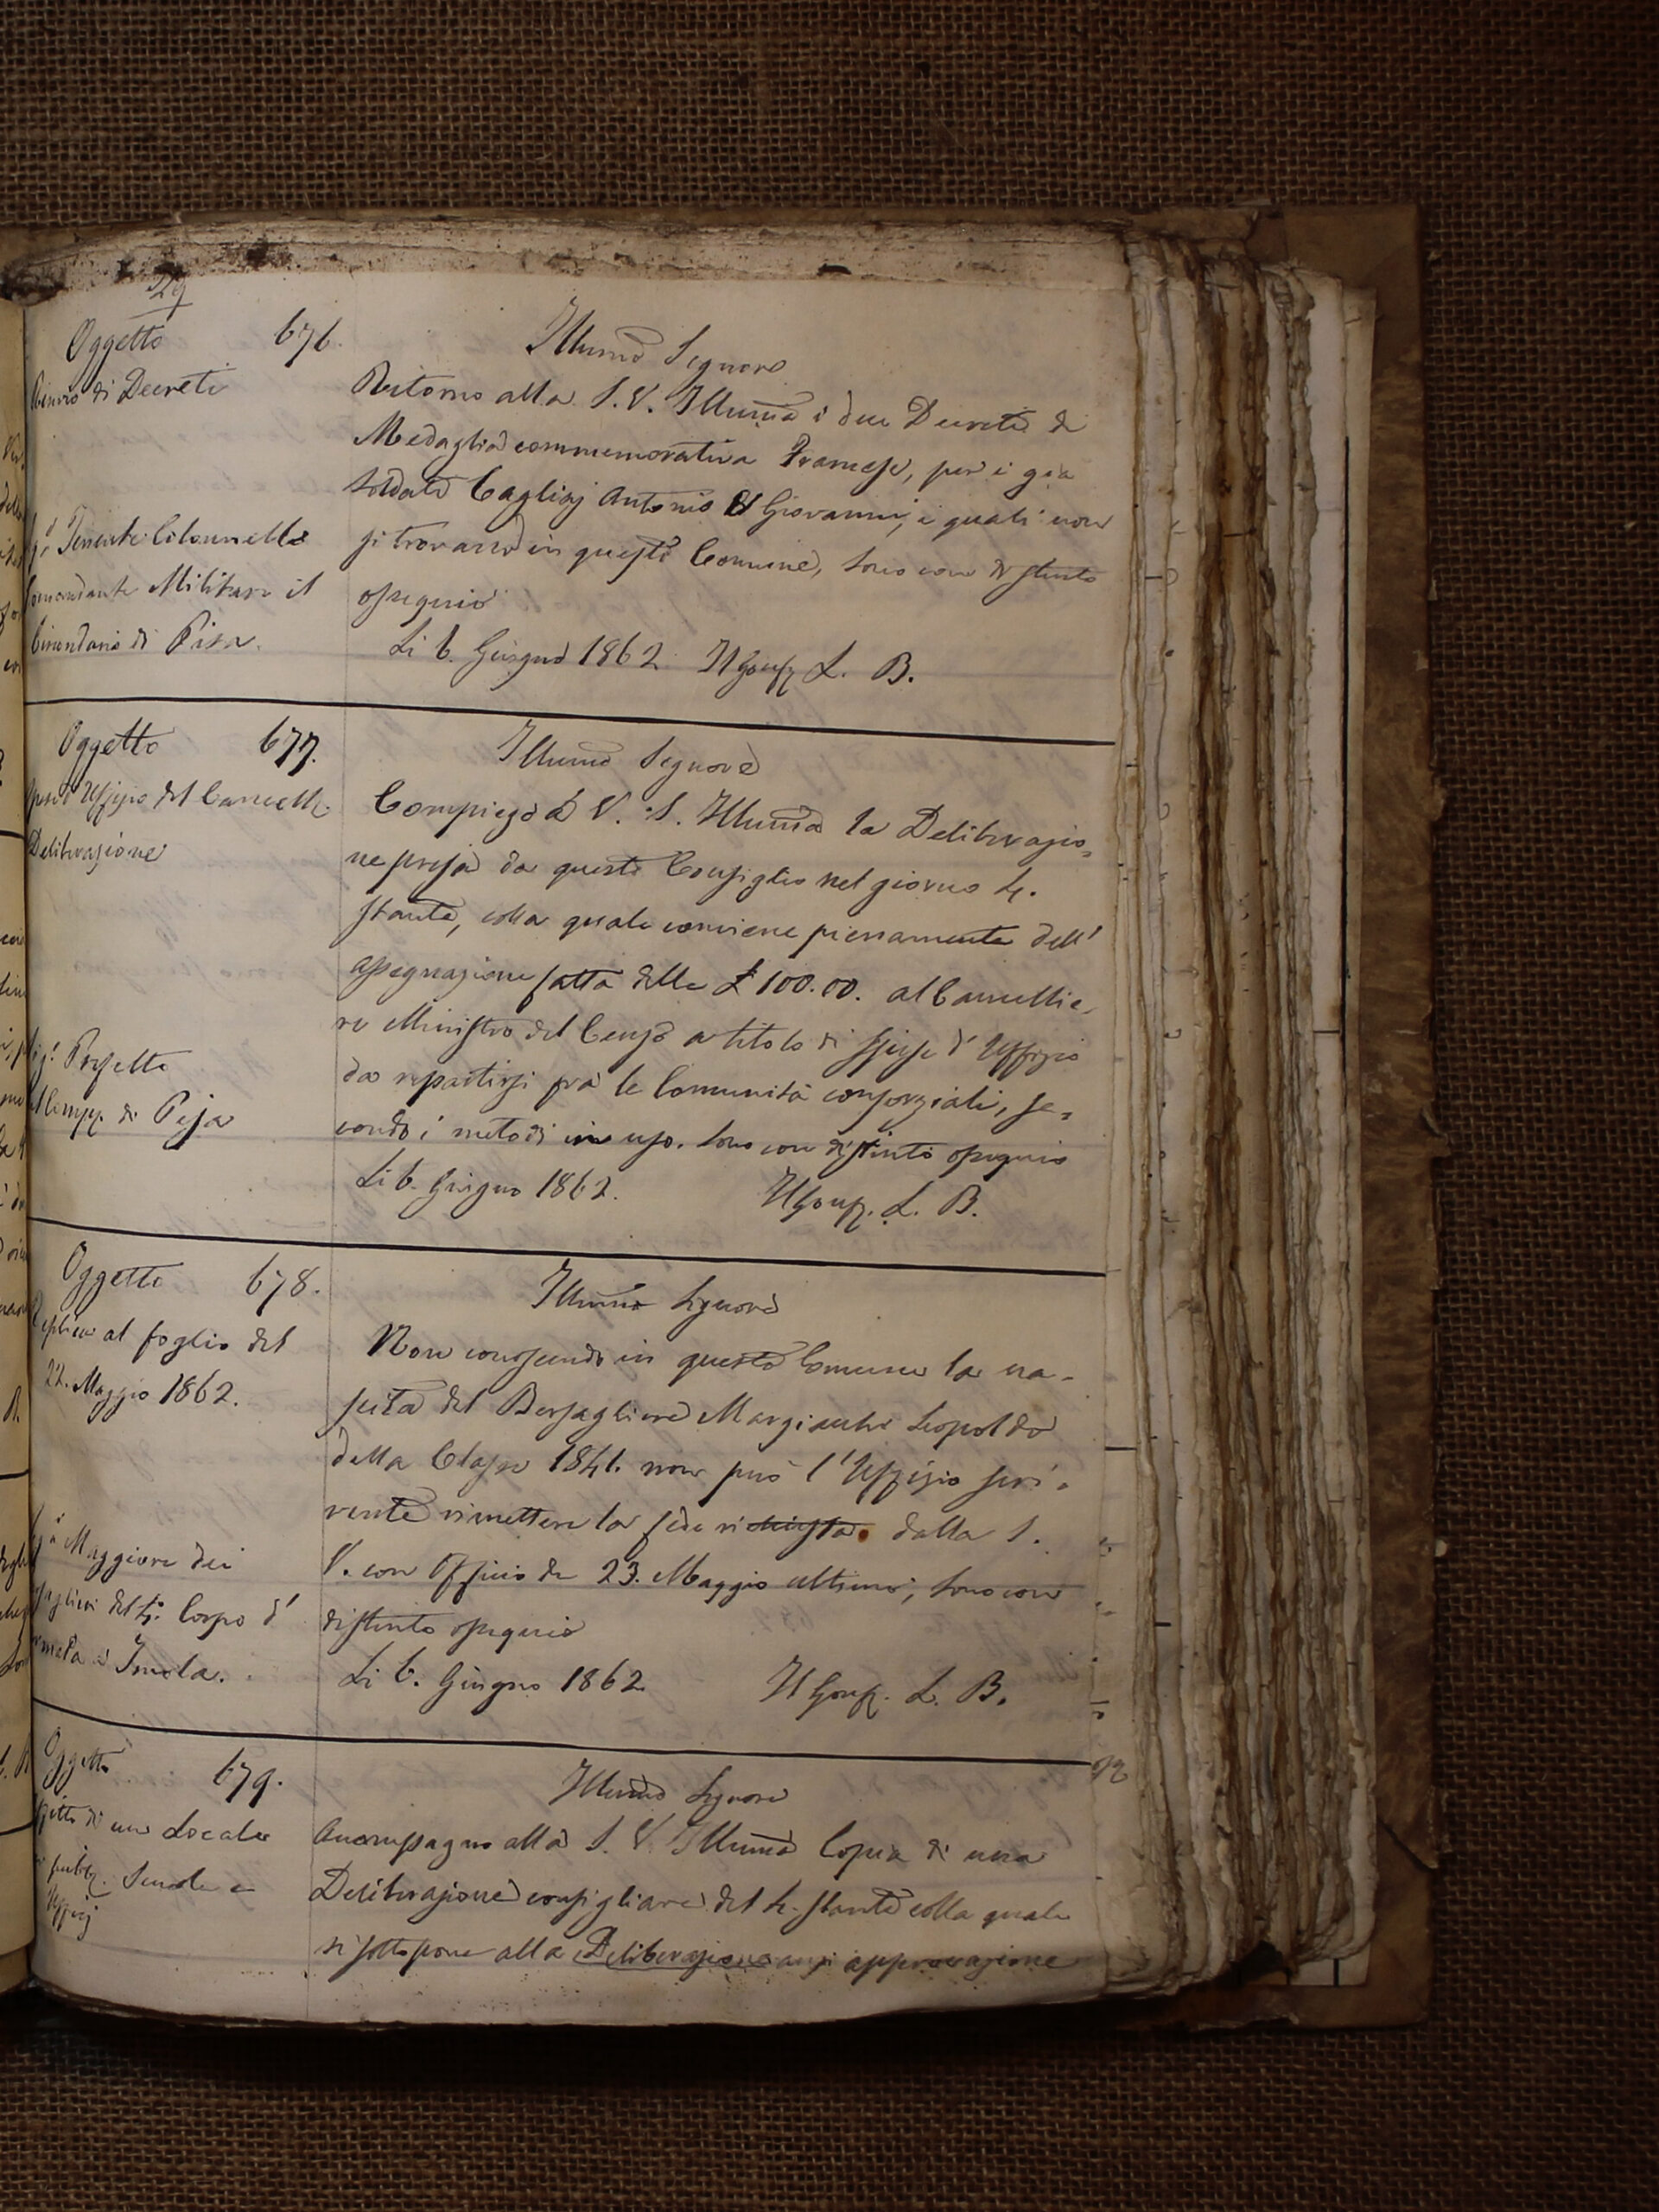 29
Oggetto 676.
Rinvio di Decreti
Tenente Colonnello
Comandante Militare il
Circondario di Pisa.
Illumo Signore
Ritorno alla S. V. Illuma i due Decreti di
Medaglia commemorativa Francese, per i già
soldati Caglioj Antonio e Giovanni, i quali non
si trovano in questo Comune, sono con distinto
ossequio
Li 6. Giugno 1862 Il Gonfr L. B.
Oggetto 677.
Uffizio del Cancellr.
Deliberazione
Prefetto
di Pisa
Illumo Signore
Compiego a V. S. Illuma la Deliberazio=
ne presa da questo Consiglio nel giorno 4.
stante, colla quale conviene pienamente dell'
assegnazione fatta delle £ 100.00. al Cancellie=
re Ministro del Censo a titolo di spese d'Uffizio
da repartirsi fra le Comunità consorziali, se=
condo i metodi in uso. Sono con distinto ossequio
Li 6. Giugno 1862. Il Gonfr. L. B.
Oggetto 678.
Replica al foglio del
22. Maggio 1862.
Maggiore dei
del 4o. Corpo d'
Imola.
Illumo Signore
Non conoscendo in questo Comune la na=
scita del Bersagliere Leopoldo
della Classe 1841. non può l'Uffizio scri=
vente rimettere la fede richiesta dalla S.
V. con Officio de 23. Maggio ultimo, sono con
distinto ossequio
Li 6. Giugno 1862 Il Gonfr. L. B.
Oggetto 679.
di un Locale
Scuole e
Uffizj
Illumo Signore
Accompagno alla S. V. Illuma Copia di una
Deliberazione consigliare del 4. stante colla quale
si sottopone alla Deliberazione anzi approvazione